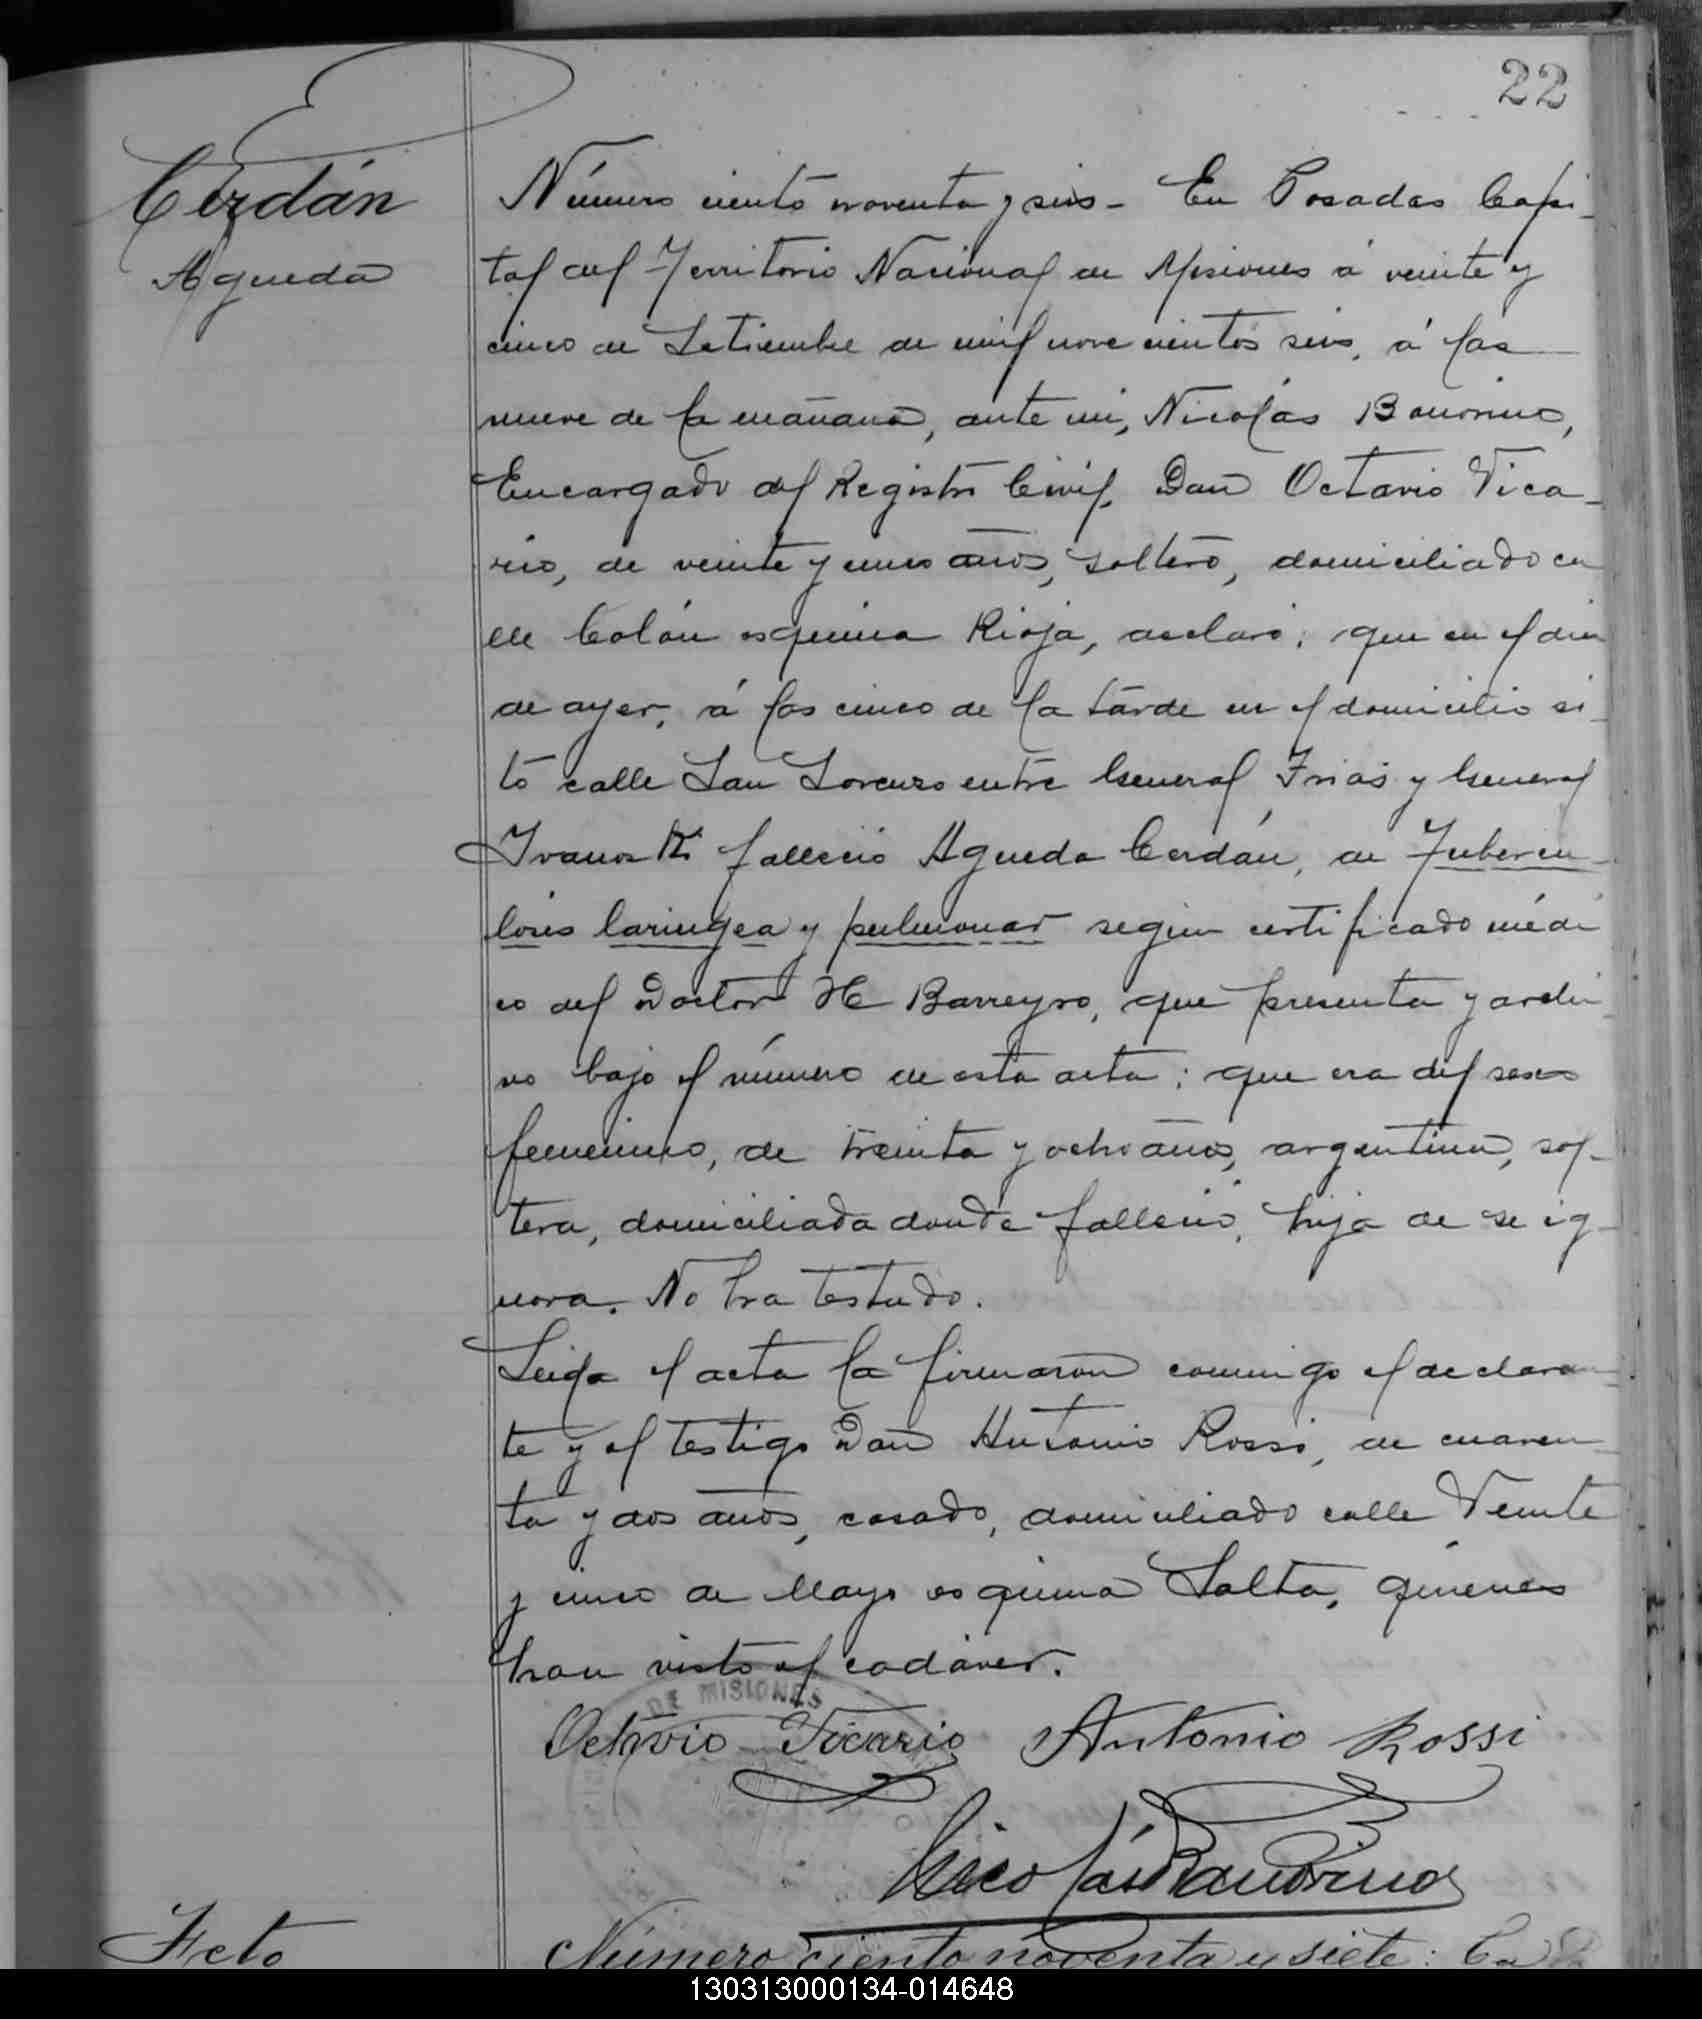 22
Cerdán
Agueda
Número ciento noventa y seis - En Posadas Capi-
tal del Territorio Nacional de Misiones á veinte y
cinco de Setiembre de mil novecientos seis, á las
nueve de la mañana, ante mi, Nicolás Bauorino,
Encargado del Registro Civil, Don Octavio Vica-
rio, de veinte y cinco años, soltero, domiciliado ca
lle Colón esquina Rioja, declaró; que en el dia
de ayer, á las cinco de la tarde en el domicilio si-
to calle San Lorenzo entre General Frias y General
Ivanoski falleció Agueda Cerdán, de Tubercu-
losis laringea y pulmonar segun certificado médi
co del Doctor H Barreyro, que presenta y archi-
vo bajo el número de esta acta; que era del sexo
femenino, de treinta y ocho años, argentina, sol-
tera, domiciliada donde falleció, hija de se ig-
nora. No ha testado.
Leida el acta la firmaron conmigo el declaran-
te y el testigo Don Antonio Rossi, de cuaren-
ta y dos años, casado, domiciliado calle Veinte
y cinco de Mayo esquina Salta, quienes
han visto el cadáver.
DE MISIONES
Octavio Vicario Antonio Rossi
Nicolás Bauorino
Feto
Número ciento noventa y siete: En
130313000134-014648